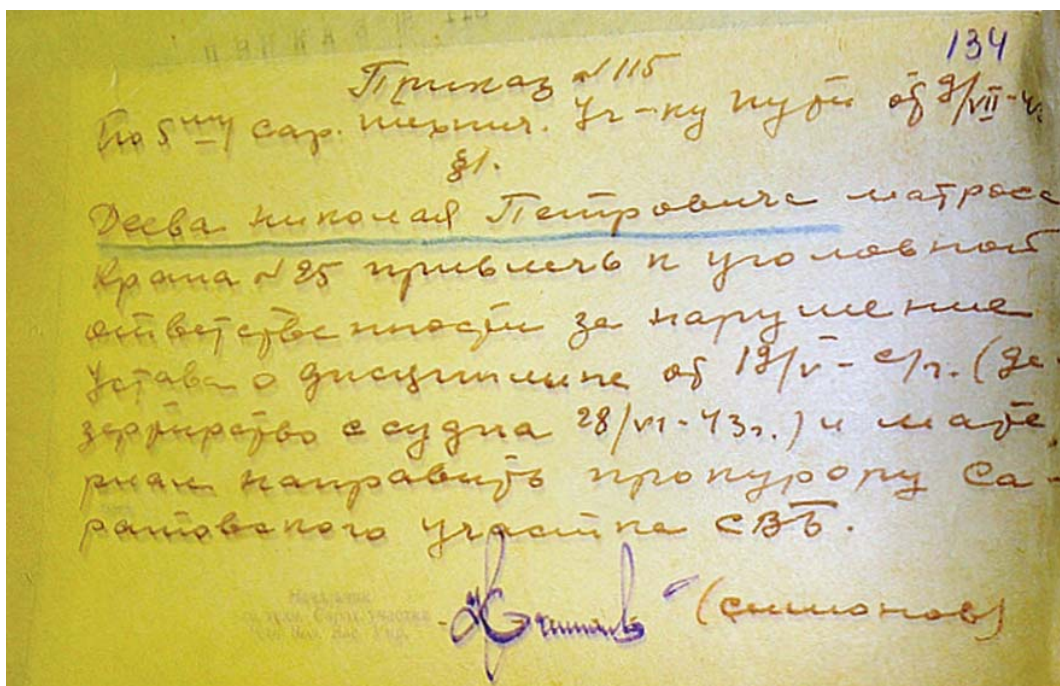 134
Приказ №115
По 5му Сар. технич. Уч-ку пути от 9/VII-43
§1.
Деева Николая Петровича матроса
Крана №25 привлечь к уголовной
ответственности за нарушение
Устава о дисциплине от 19/V- с/г. (де
зертирство с судна 28/VI-43г.) и мате
риал направить прокурору Са-
ратовского участка СВБ.
(Симонов)